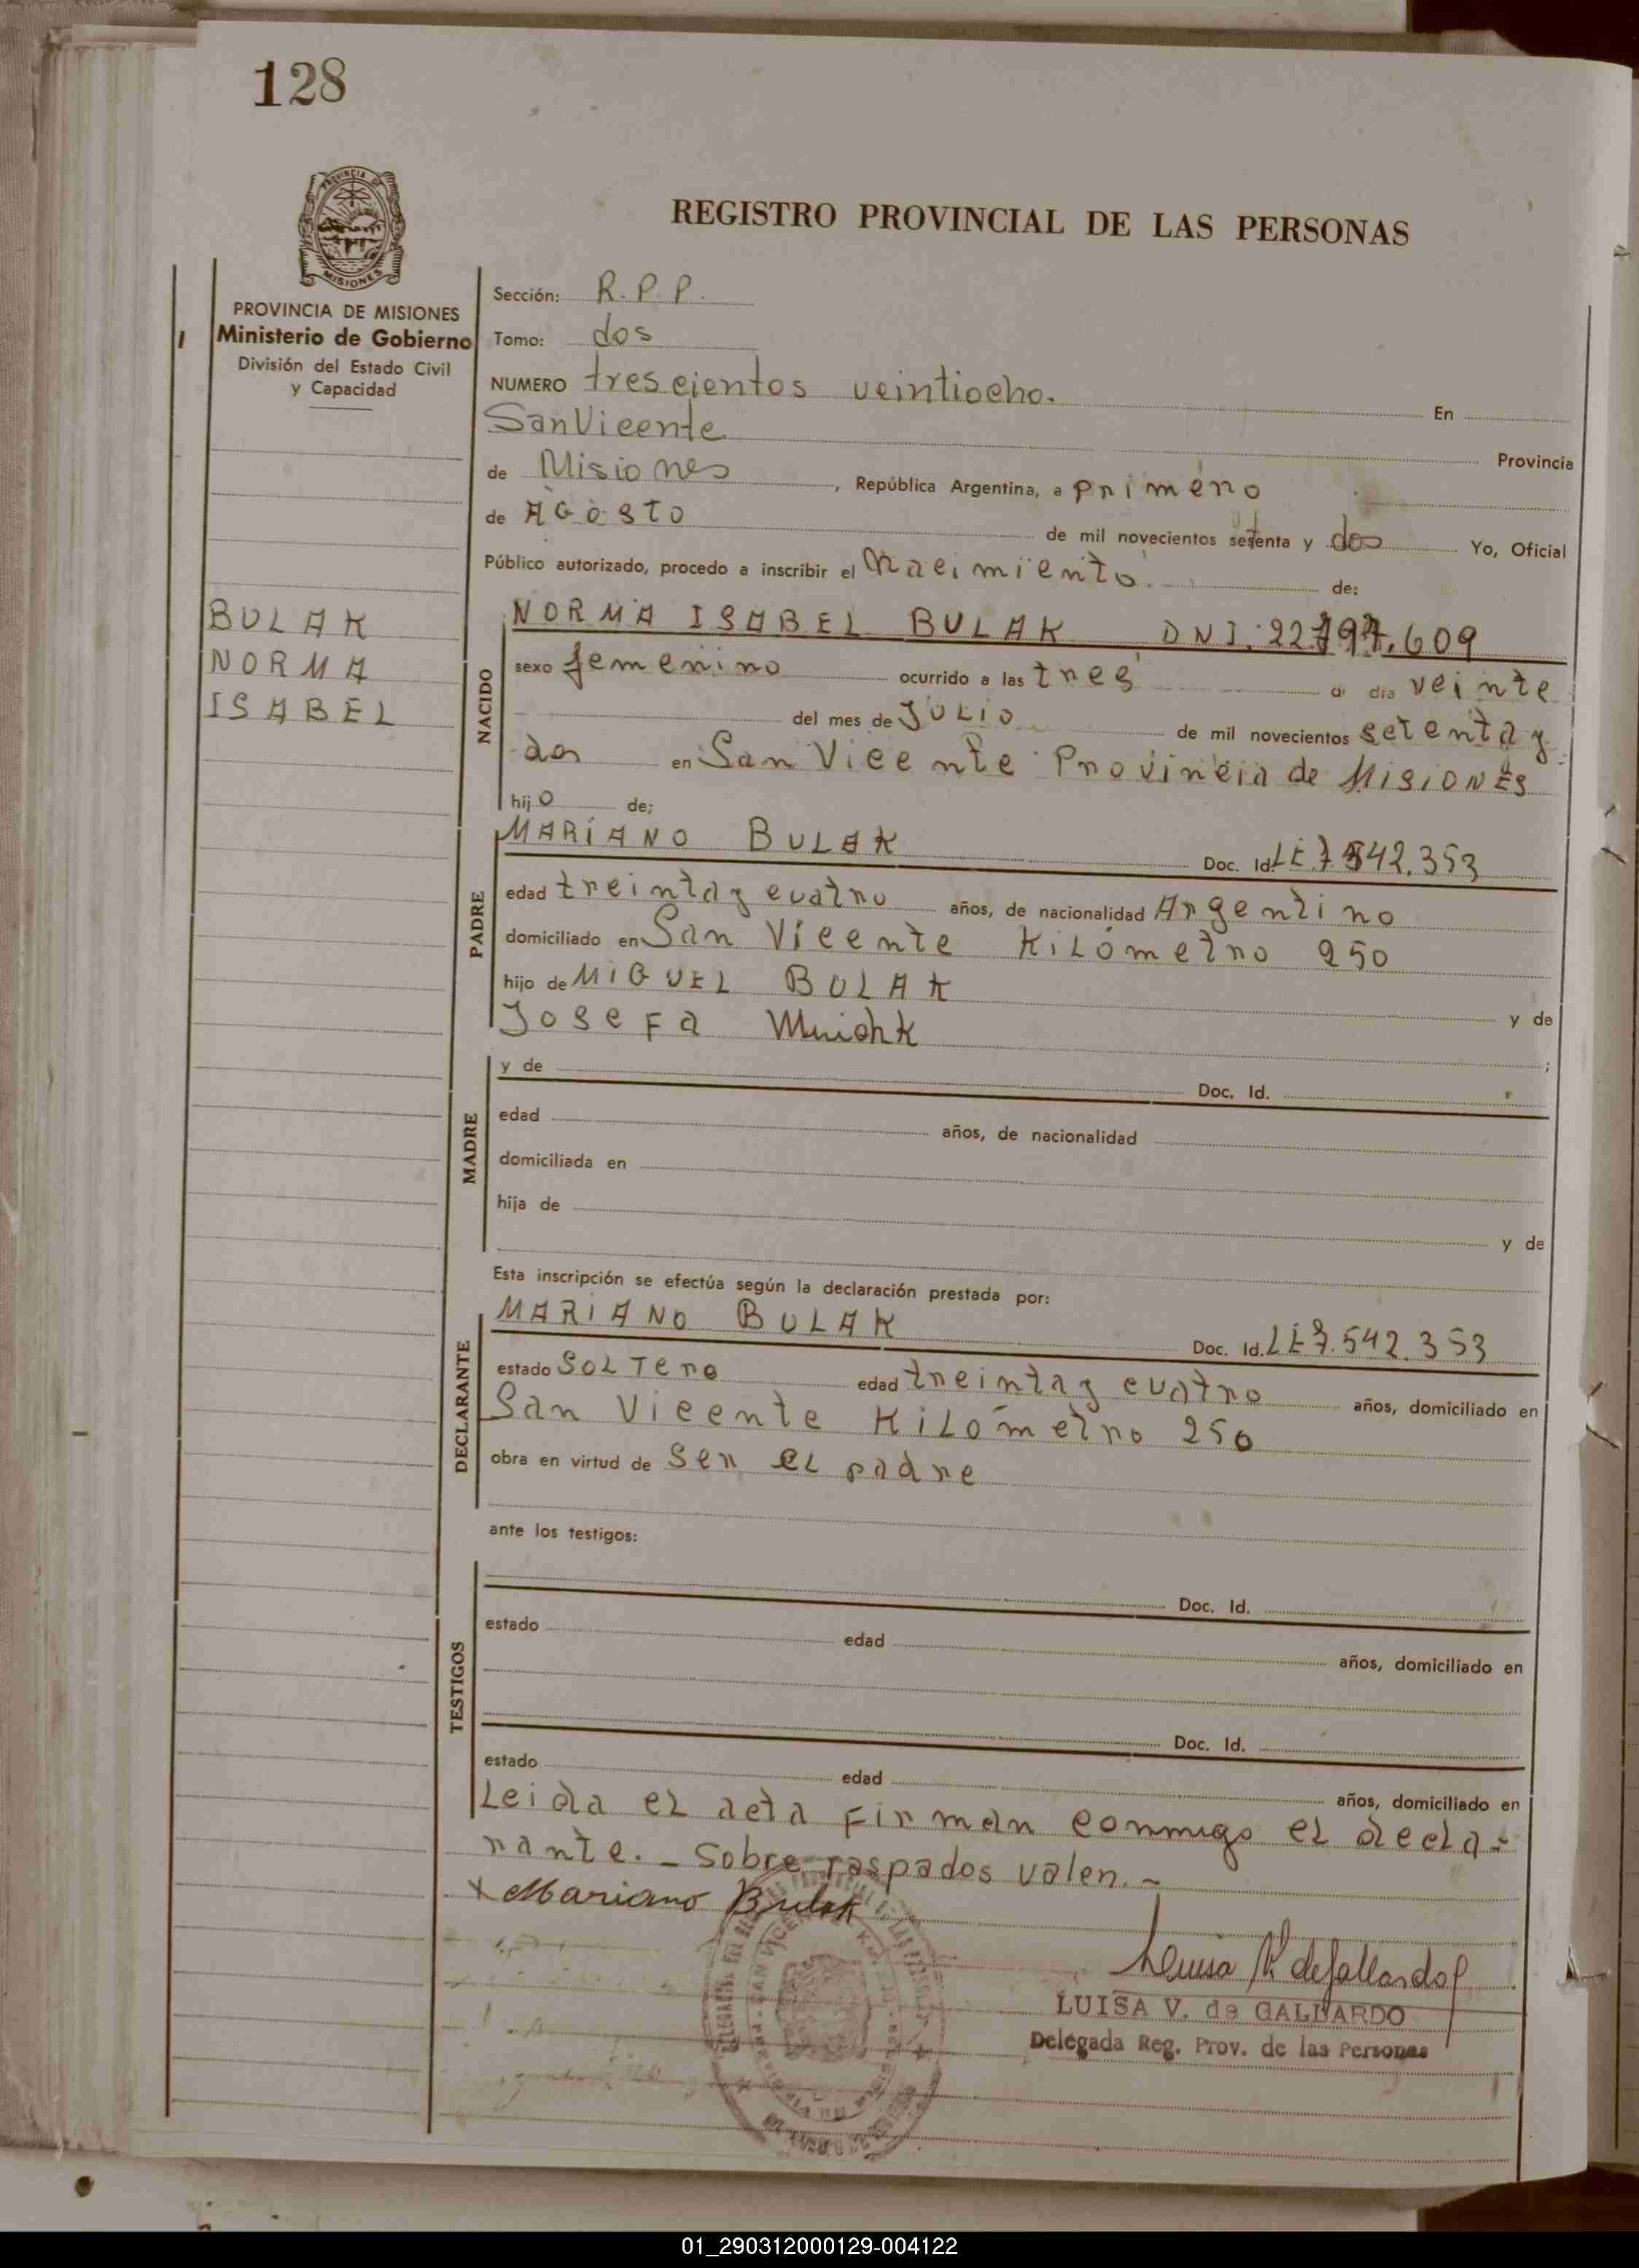 128
PROVINCIA DE
MISIONES
REGISTRO PROVINCIAL DE LAS PERSONAS
PROVINCIA DE MISIONES
Ministerio de Gobierno
División del Estado Civil
y Capacidad
BULAK
NORMA
ISABEL
Sección: R.P.P.
Tomo: dos
NUMERO trescientos veintiocho. En
San Vicente Provincia
de Misiones, República Argentina, a primero
de AGOSTO de mil novecientos setenta y dos Yo, Oficial
Público autorizado, procedo a inscribir el nacimiento. de:
NACIDO
NORMA ISABEL BULAK DNI. .609
sexo femenino ocurrido a las tres dí día veinte
del mes de JULIO de mil novecientos setenta y
dos en San Vicente Provincia de MISIONES
hijo de;
PADRE
MARIANO BULAK Doc. Id. LE 7.542.353
edad treinta y cuatro años, de nacionalidad Argentino
domiciliado en San Vicente KiLómetro 250
hijo de MIGUEL BULAK y de
Josefa ;
MADRE
y de Doc. Id.
edad años, de nacionalidad
domiciliada en
hija de y de
Esta inscripción se efectúa según la declaración prestada por:
DECLARANTE
MARIANO BULAK Doc. Id. LE 7.542.353
estado SOLTero edad treinta y cuatro años, domiciliado en
San Vicente KiLómetro 250
obra en virtud de Ser eL padre
ante los testigos:
TESTIGOS
Doc. Id.
estado edad años, domiciliado en
Doc. Id.
estado edad años, domiciliado en
Leida eL acta Firman conmigo eL decla-
rante. - Sobre raspados valen. -
x Mariano Bulak
Luisa V. de Gallardo
LUISA V. de GALLARDO
Delegada Reg. Prov. de las Personas
01_290312000129-004122